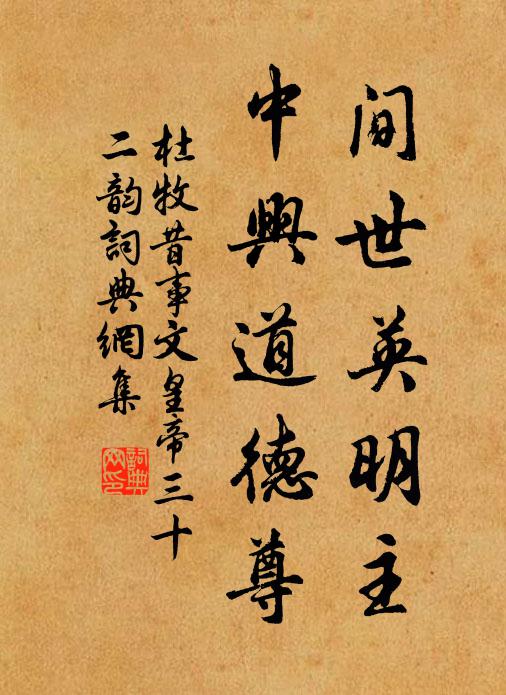 间世英明主
中興道德尊
杜牧昔事文皇帝三十
二韵詞典網集
詞典網印